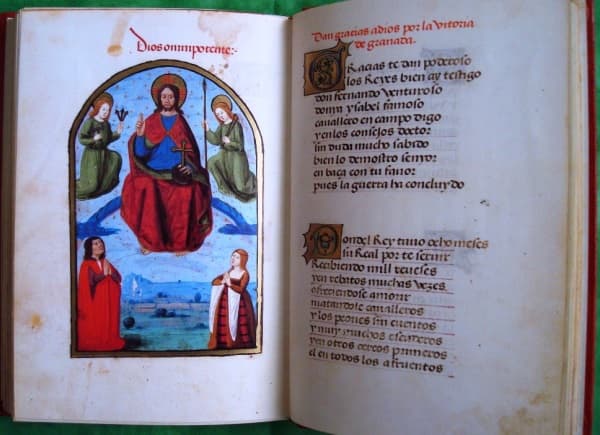 Dios onimpotente:-
Dan gracias a dios por la vitoria
de granada.
GRacias te dan poderoso
los Reyes bien ay testigo
don fernando venturoso
donya ysabel famoso
cavallero en campo digo
y en los consejos doctor
sin duda mucho sabido
bien lo demostro senyor
en baça con tu favor
pues la guerra ha concluydo
Donde el Rey tuvo ocho meses
sin Real por te servir
Recibiendo mill reveses
y en rebatos muchas vezes
ofreciendose a morir
matandole cavalleros
y los peones sin cuentos
y muy muchos escuderos
y en otros cercos primeros
el en todos los afruentos